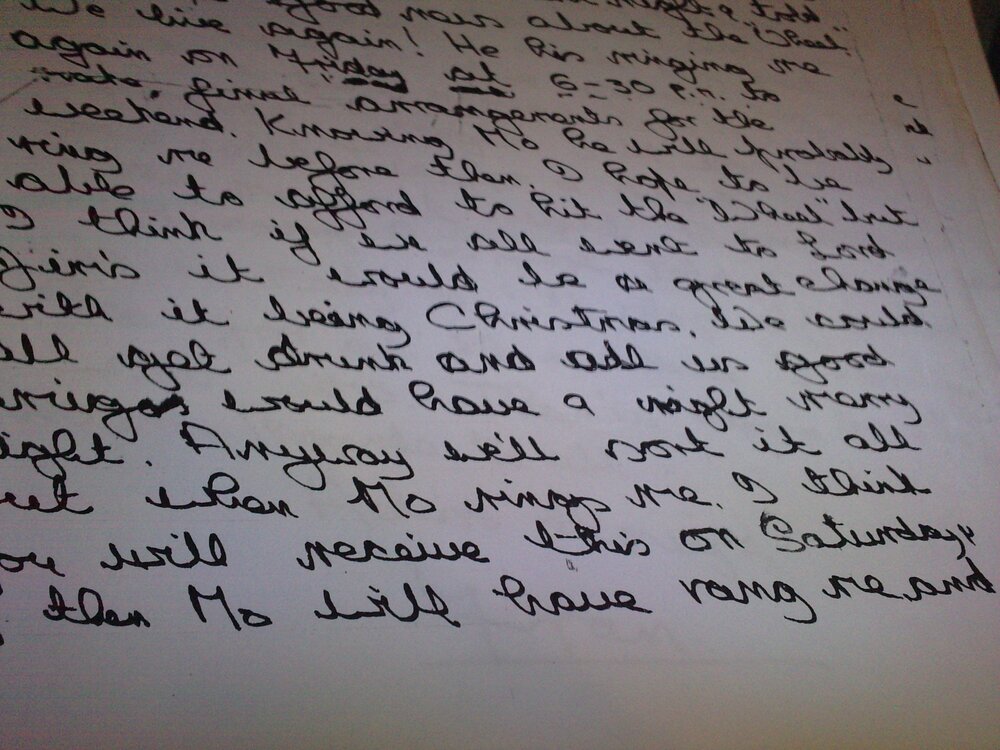 good news about the "Wheel".
We live again! He his ringing me
again on Friday at 6-30 p.m. to
make final arrangements for the
weekend. Knowing Mo he will probably
ring me before then. I hope to be
able to afford to hit the "Wheel" but
I think if we all went to Lord
Jim's it would be a great change
with it being Christmas. We could
all get drunk and add us good
would have a right marry
ight. Anyway we'll sort it all
ut when Mo rings me. I think
ou will receive this on Saturday,
then Mo will have rang me and